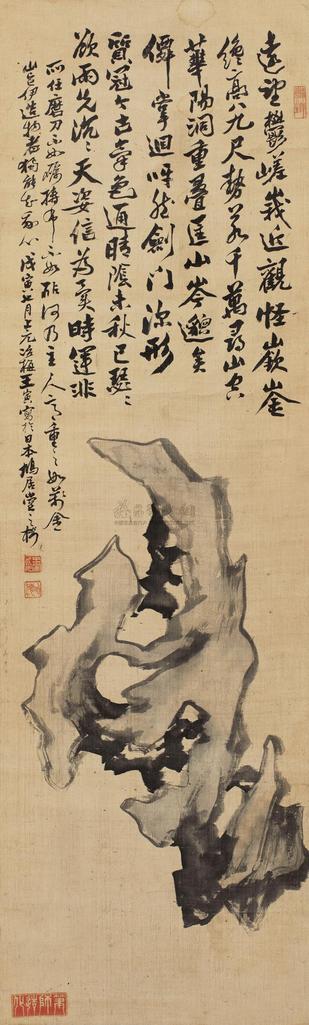 遠望鬱嵯峩近觀怪嶔崟
纔高八九尺勢若千萬尋山空
華陽洞重疊匡山岑邈矣
僊掌迴呀然劍门深形
質冠今古氣色通晴陰未秋已瑟〻
欲雨先沉〻天姿信為異時運非
所任磨刀不如礪擣帛不如砧何乃主人意重之如萬金
豈伊造物者獨能知我心戊寅七月上元冶梅王寅寫於日本鳩居堂之樓
筆師造化